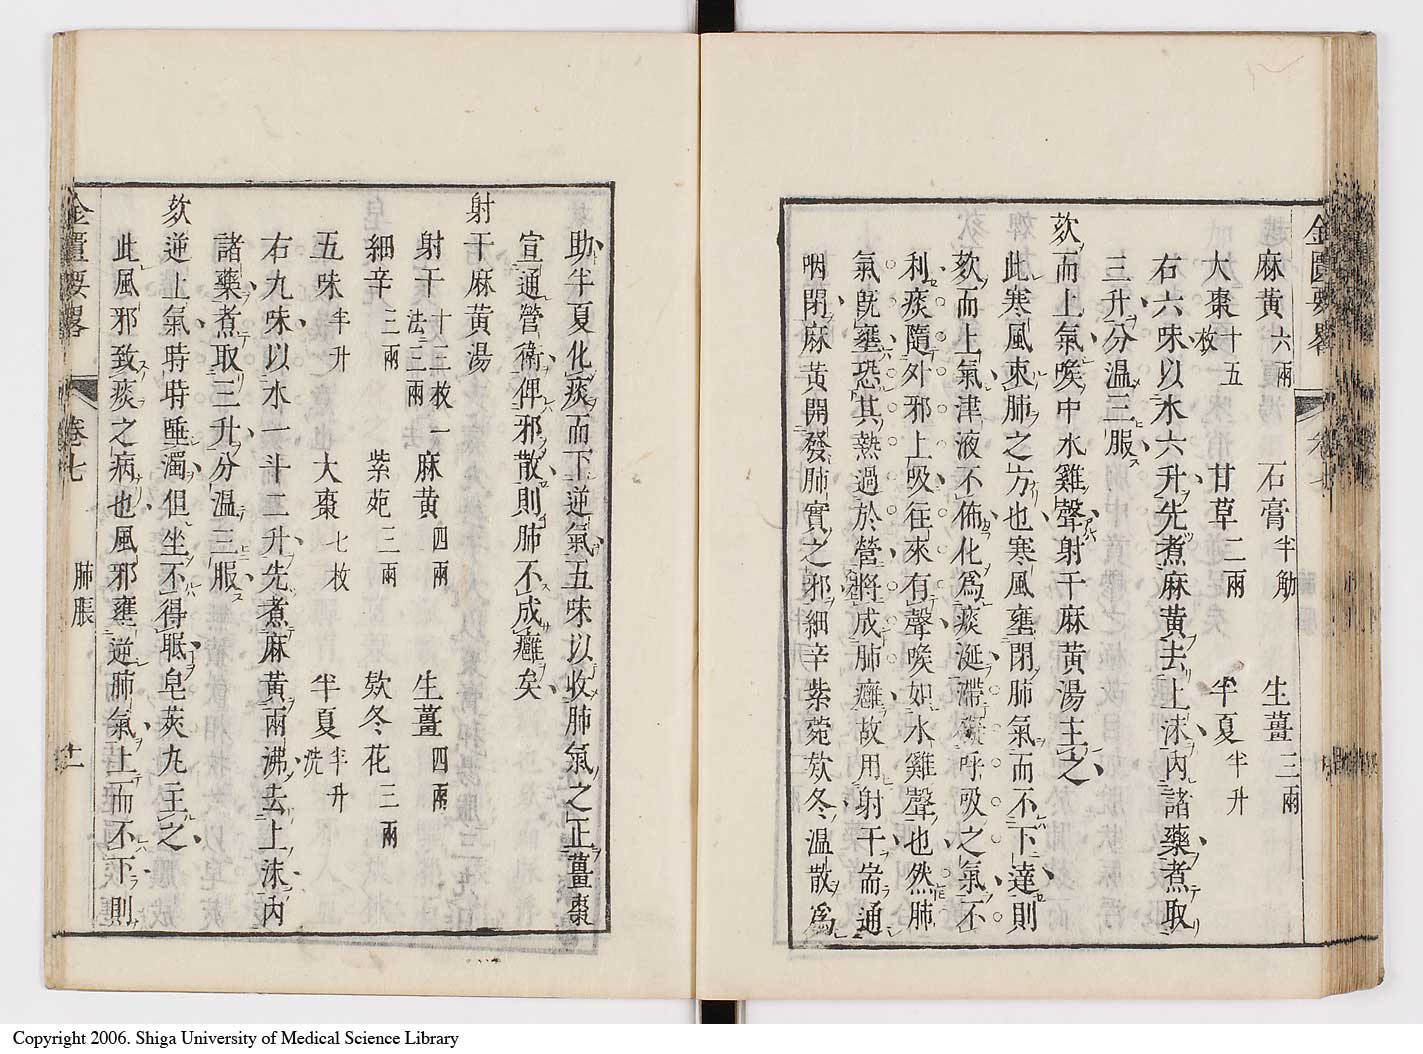 麻黄六兩 石膏半觔 生薑三兩
大棗十五枚 甘草二兩 半夏半升
右六味以水六升先煮麻黄去上沫內諸藥煮取
三升分温三服
欬而上氣喉中水雞聲射干麻黄湯主之
此寒風束肺之方也寒風壅閉肺氣而不下達則
欬而上氣津液不佈化為痰涎滯礙呼吸之氣不
利痰隨外邪上吸往來有聲喉如水雞聲也然肺
氣既壅恐其熱過於營將成肺癰故用射干耑通
咽閉麻黄開發肺實之邪細辛紫菀欬冬温散為
助半夏化痰而下逆氣五味以收肺氣之正薑棗
宣通營衛俾邪散則肺不成癰矣
射干麻黄湯
射干十三枚一法三兩 麻黄四兩 生薑四兩
細辛三兩 紫苑三兩 欵冬花三兩
五味半升 大棗七枚 半夏半升洗
右九味以水一斗二升先煮麻黄兩沸去上沫內
諸藥煮取三升分温三服
欬逆上氣時時唾濁但坐不得眠皂莢丸主之
此風邪致痰之病也風邪壅逆肺氣上而不下則
金匱要略 卷七 肺脹 十一
Copyright 2006. Shiga University of Medical Science Library